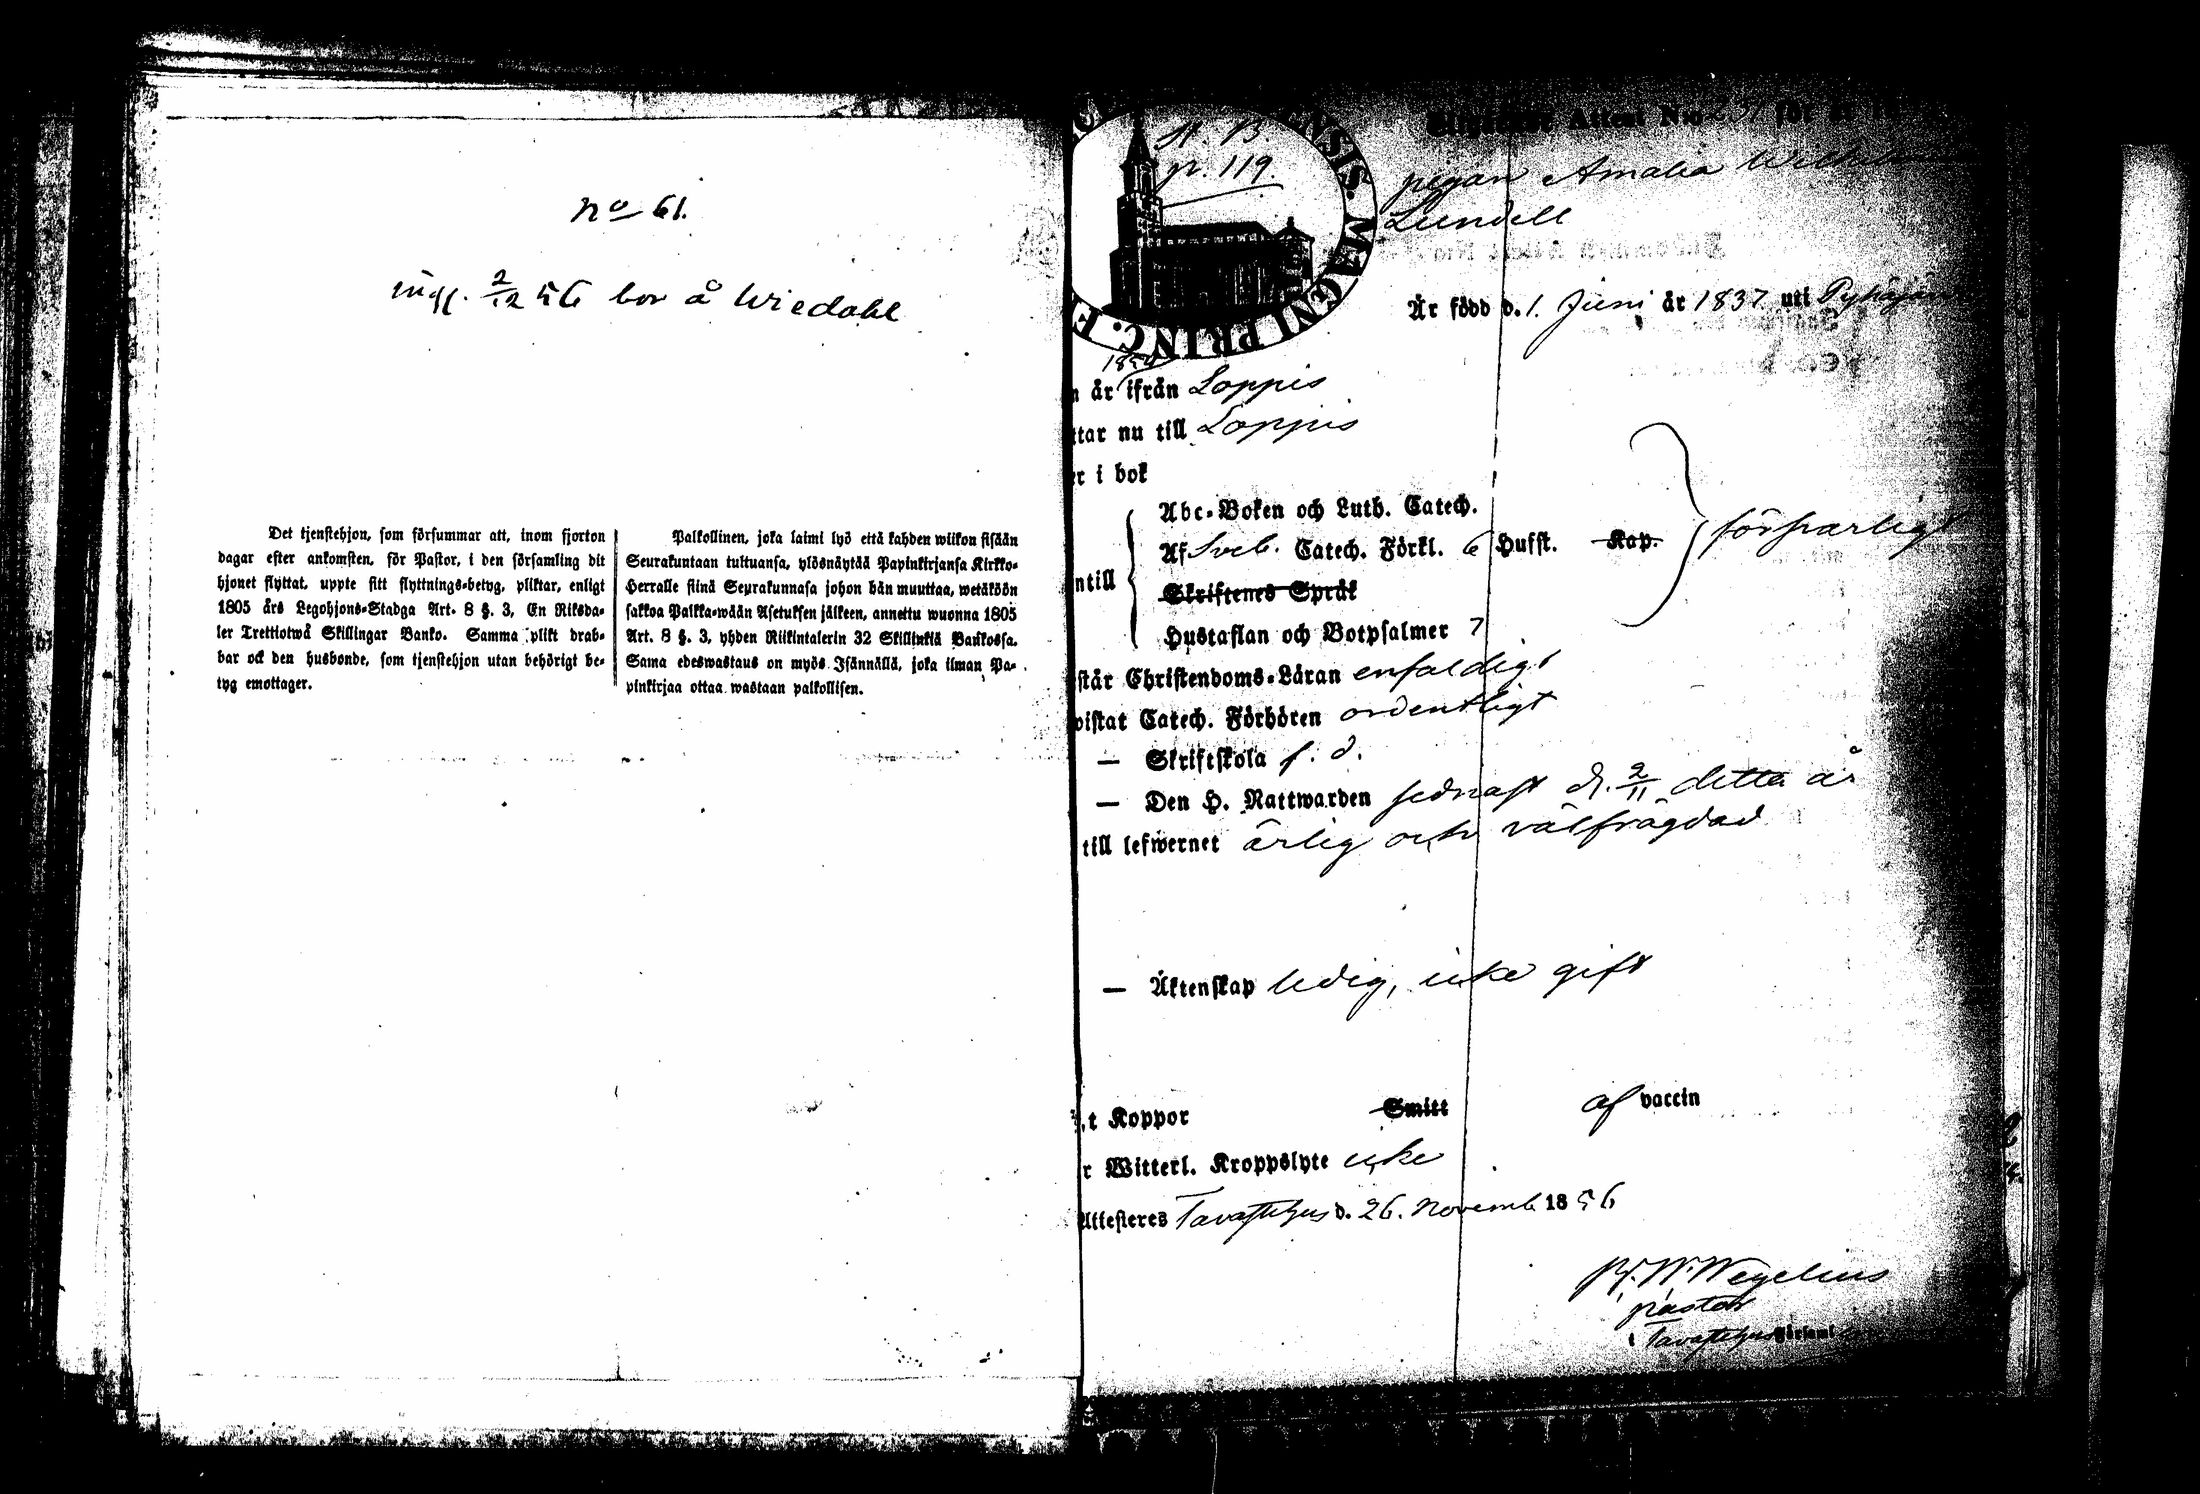 No 61.
ingf. 2/12 56 bor å Wiedahl
Det tjenstehjon, som försummar att, inom fjorton
dagar efter ankomsten, för Pastor, i den församling dit
hjonet flyttat, uppte sitt flyttnings-betyg, pliktar, enligt
1805 års Legohjons-Stadga Art. 8 §. 3, En Riksda-
ler Trettiotwå Skillingar Banko. Samma plikt drab-
bar ock den husbonde, som tjenstehjon utan behörigt be-
tyg emottager.
Palkollinen, joka laimi lyö että kahden wiikon sisään
Seurakuntaan tultuansa, ylösnäytää Papinkirjansa Kirkko-
Herralle siinä Seurakunnasa johon hän muuttaa, wetäköön
sakkoa Palkka-wään Asetuksen jälkeen, annettu wuonna 1805
Art. 8 §. 3, yhden Riikintalerin 32 Skillinkiä Bankossa.
Sama edeswastaus on myös Isännällä, joka ilman Pa-
pinkirjaa ottaa wastaan palkollisen.
ENSIS. MAGNI PRINC. F
p. 119.
Attest No 237 för
pigan Amalia
Lundell
Är född d. 1. Juni år 1837 uti
1850
n år ifrån Loppis
ttar nu till Loppis
er i bok
ntill
Abc-Boken och Luth. Catech.
Af Sveb. Catech. Förkl. 6 Hufst. Kap.
Skriftenes Språk
Hustaflan och Botpsalmer 7
försvarligt
står Christendoms-Läran enfaldigt
vistat Catech. Förhören ordentligt
— Skriftskola f. d.
— Den H. Nattwarden sednast d. 2/11 detta år
till lefwernet ärlig och välfrägdad
— Äktenskap ledig, icke gift
t Koppor Smitt af vaccin
r Witterl. Kroppslyte icke
Attesteres Tavastehus d. 26. Novemb. 1856
W. Wegelius
pastor
Tavastehus